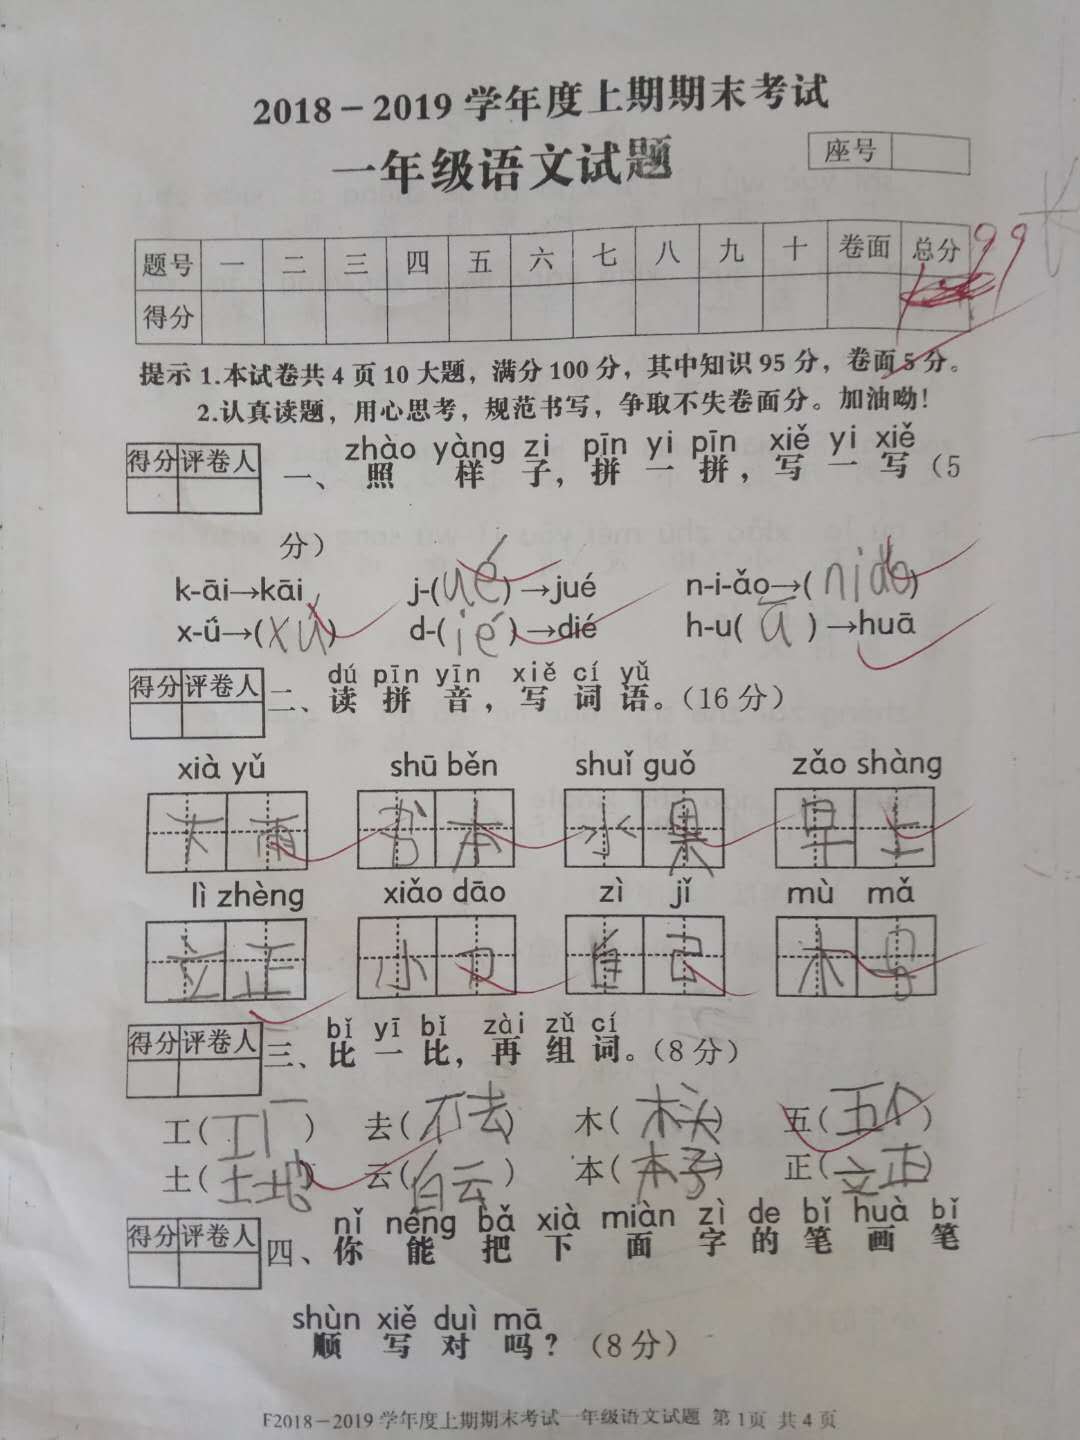 2018-2019学年度上期期末考试
一年级语文试题
座号
题号 一 二 三 四 五 六 七 八 九 十 卷面 总分
99
得分
提示1.本试卷共4页10大题，满分100分，其中知识95分，卷面5分。
2.认真读题，用心思考，规范书写，争取不失卷面分。加油呦！
得分 评卷人
zhào yàng zi pīn yi pīn xiě yi xiě
一、照样子，拼一拼，写一写（5
分）
k-āi→kāi j-(ué)→jué n-i-ǎo→(niǎo)
x-ǘ→(xú) d-(ié)→dié h-u(ā)→huā
得分 评卷人
dú pīn yīn xiě cí yǔ
二、读拼音，写词语。（16分）
xià yǔ shū běn shuǐ guǒ zǎo shàng
下雨 书本 水果 早上
lì zhèng xiǎo dāo zì jǐ mù mǎ
立正 小刀 自己 木马
得分 评卷人
bǐ yī bǐ zài zǔ cí
三、比一比，再组词。（8分）
工(工厂) 去(不去) 木(木头) 五(五个)
土(土地) 云(白云) 本(本子) 正(立正)
得分 评卷人
nǐ néng bǎ xià miàn zì de bǐ huà bǐ
四、你能把下面字的笔画笔
shùn xiě duì mā
顺写对吗？（8分）
F2018-2019学年度上期期末考试一年级语文试题 第1页 共4页